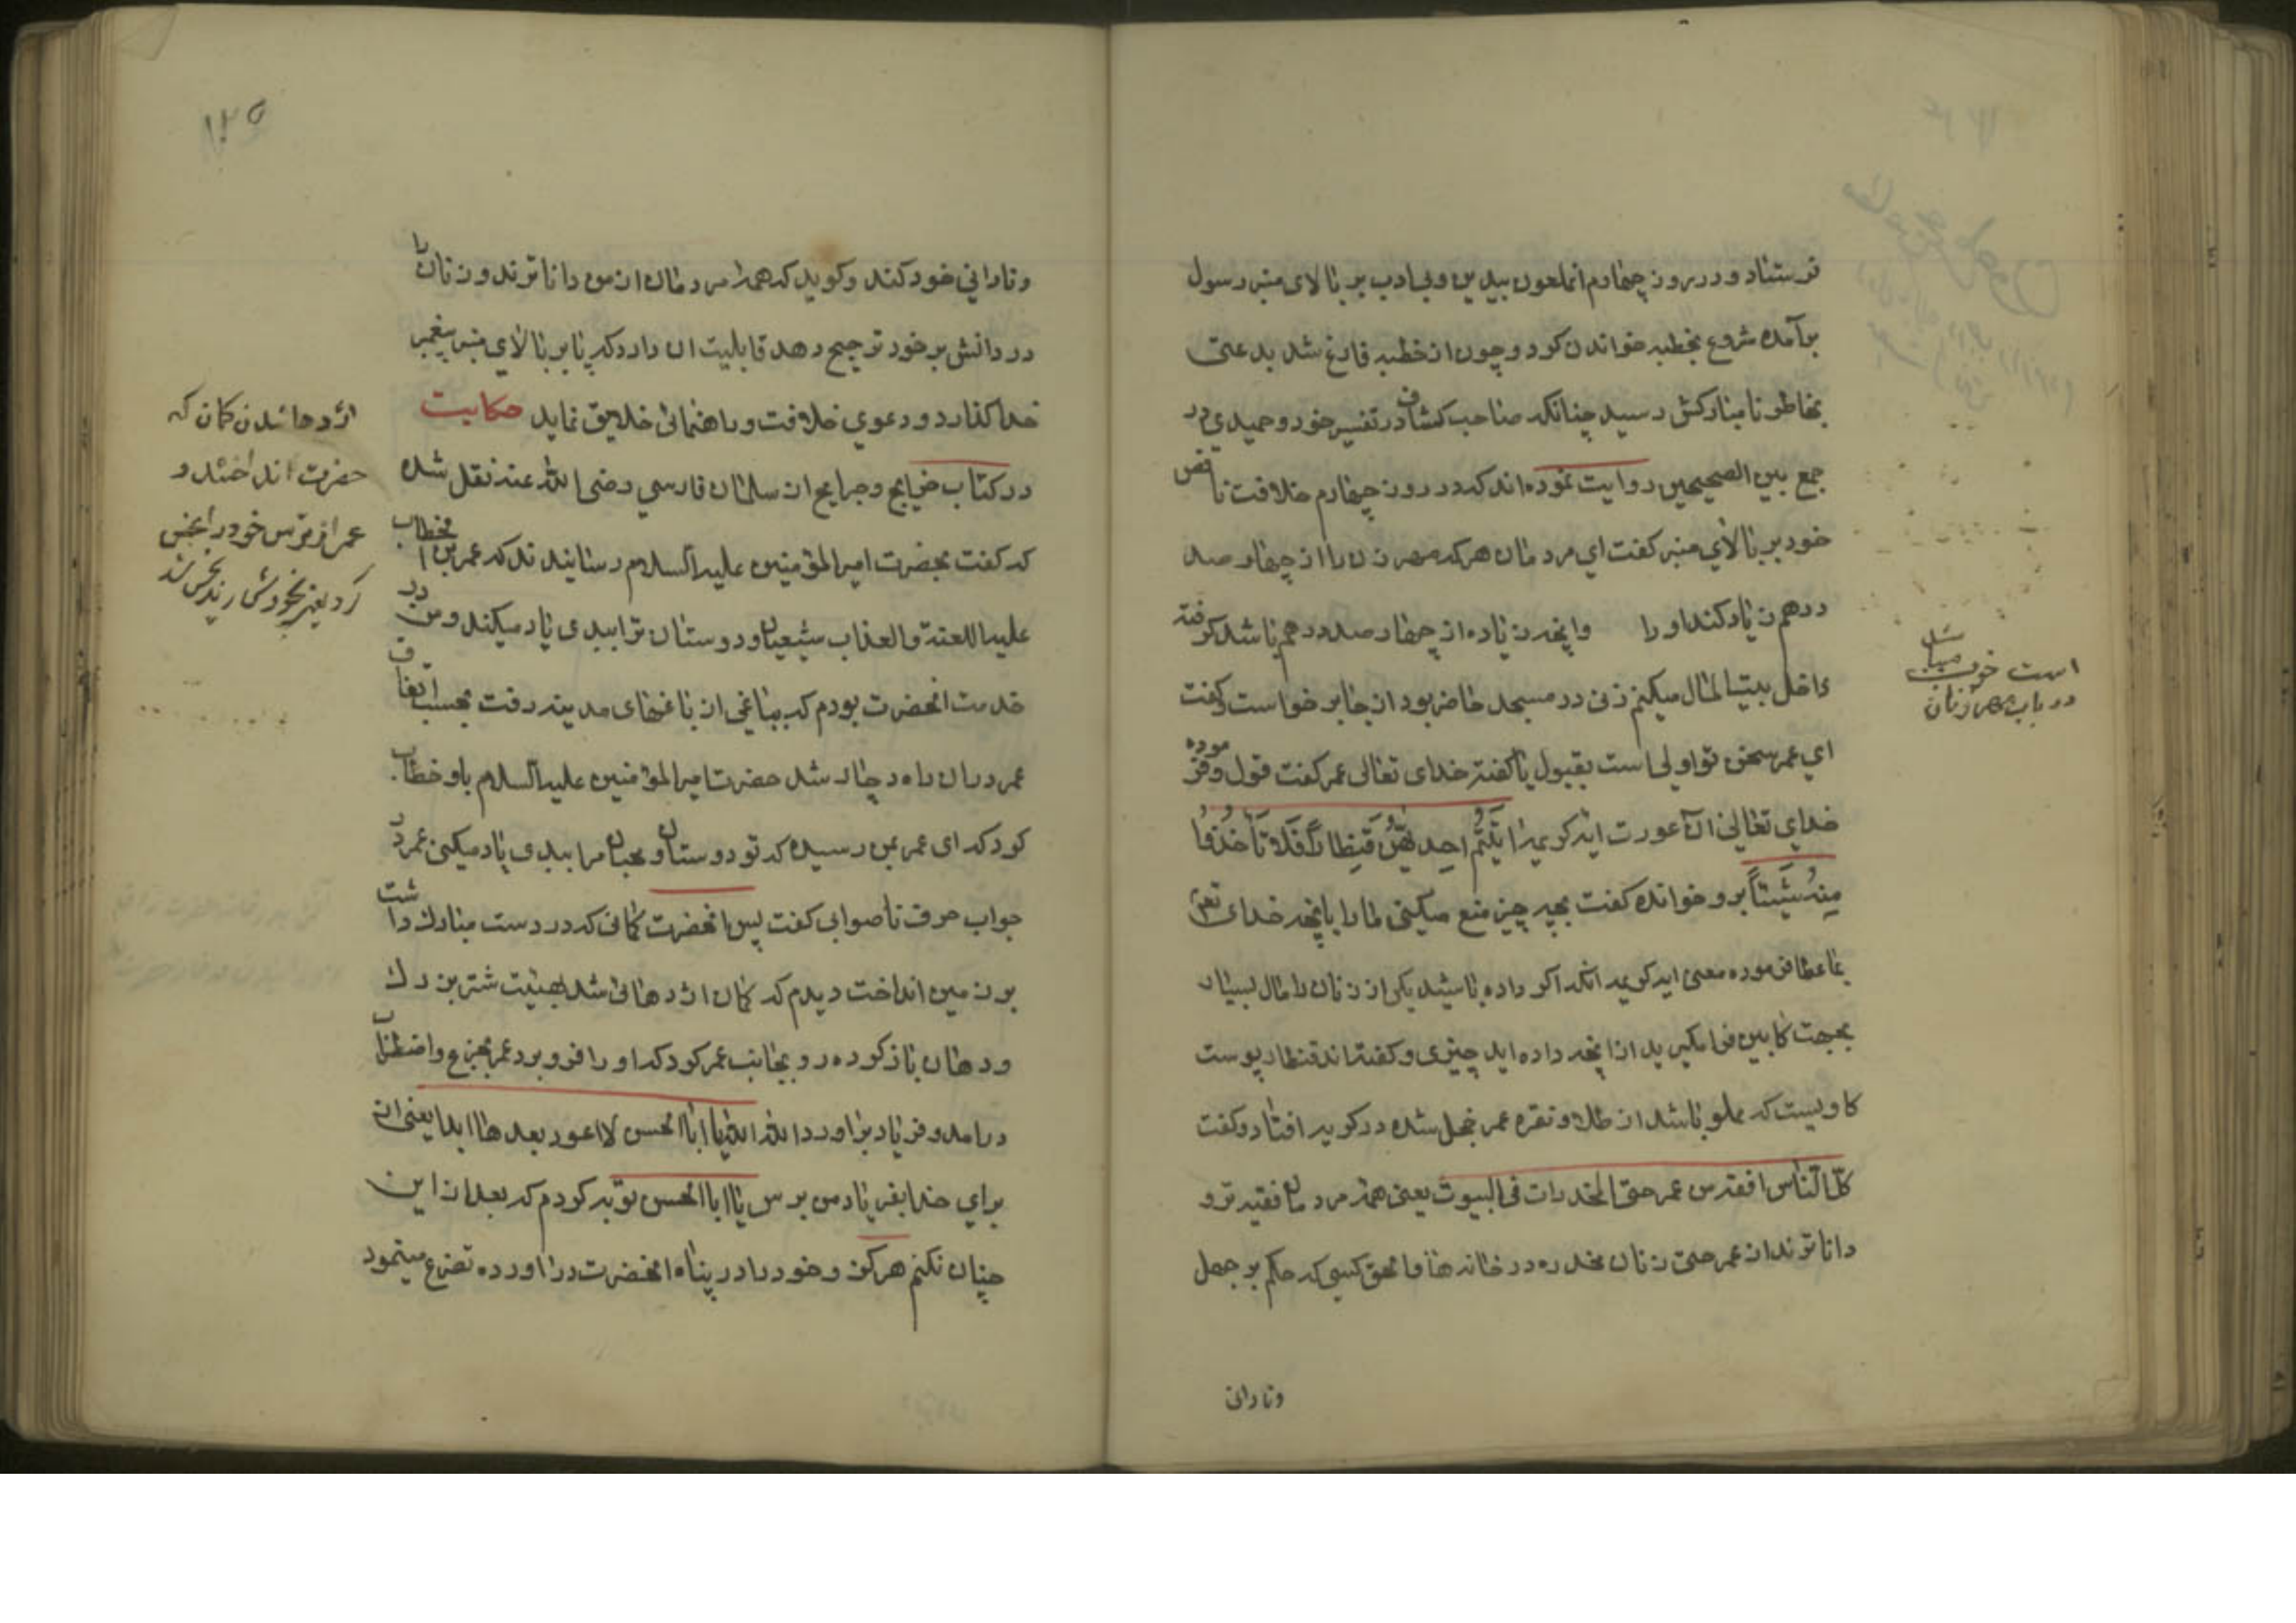 فرستاد و در روز چهارم انملعون بیدین و بی ادب بر بالای منبر رسول
برآمده شروع بخطبه خواندن کرد و چون از خطبه فارغ شد بدعتی
بخاطر نامبارکش رسید چنانکه صاحب کشاف در تفسیر خود و حمیدی در
جمع بین الصحیحین روایت نموده اند که در روز چهارم خلافت ناقص
خود بر بالای منبر کفت ای مردمان هر که مهر زن را از چهار صد
درهم زیاد کند او را وانچه زیاده از چهار صد درهم باشد کرفته
داخل بیت المال میکنم زنی در مسجد حاضر بود از جا برخواست و کفت
ای عمر سخن تو اولی است بقبول یا کفته خدای تعالی عمر کفت قول و فرموده
خدای تعالی ان عورت ایه کریمه اتیتم احدیهن قنطارا فلا تاخذوا
منه شیئا برو خوانده کفت بچه چیز منع میکنی ما را بانچه خدای تعالی
بما عطا فرموده معنی ایه کریمه انکه اکر داده باشید یکی از زنان را مال بسیار
بجهت کابین فرا مکیرید از انچه داده اید چیزی و کفته اند قنطار پوست
کاویست که مملو باشد از طلا و نقره عمر خجل شده در کریه افتاد و کفت
کل الناس افقه من عمر حتی المخدرات فی البیوت یعنی همه مردمان فقیه تر و
داناترند از عمر حتی زنان مخدره در خانه ها واحق کسی که حکم بر جهل
ونادانی
است خوب
در باب مهر زنان
۱۲۵
ونادانی خود کند و کوید که همه مردمان از من داناترند و زنان را
در دانش بر خود ترجیح دهد قابلیت ان دارد که پا بر بالای منبر پیغمبر
خدا کذارد و دعوی خلافت و راهنمائی خلایق نماید حکایت
در کتاب خرایج و جرایح از سلمان فارسی رضی الله عنه نقل شده
که کفت بحضرت امیر المؤمنین علیه السلام رسانیدند که عمر بن الخطاب
علیه اللعنة والعذاب شیعیان و دوستان ترا ببدی یاد میکند و من در
خدمت انحضرت بودم که بباغی از باغهای مدینه رفت بحسب اتفاق
عمر در ان راه دچار شد حضرت امیر المؤمنین علیه السلام باو خطاب
کرد که ای عمر بمن رسیده که تو دوستان و محبان مرا ببدی یاد میکنی عمر در
جواب حرف ناصوابی کفت پس انحضرت کمانی که در دست مبارک داشت
بر زمین انداخت دیدم که کمان اژدهائی شد بهیئت شتر بزرک
و دهان باز کرده رو بجانب عمر کرد که او را فرو برد عمر بجزع و اضطراب
درامد و فریاد براورد الله الله یا ابا الحسن لا اعود بعدها ابدا یعنی از
برای خدا بفریاد من برس یا ابا الحسن توبه کردم که بعد از این
چنان نکنم هرکز و خود را در پناه انحضرت دراورده تضرع مینمود
اژدها شدن کمان که
حضرت انداختند و
عمر از ترس خود را نجس
کرد